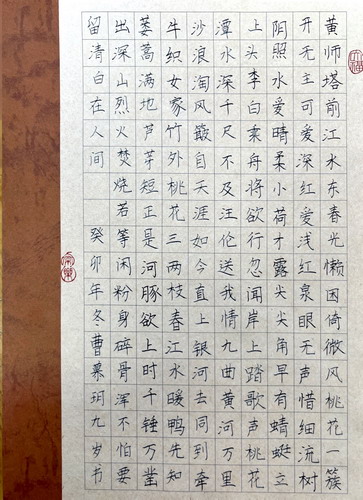 黄师塔前江水东春光懒困倚微风桃花一簇
开无主可爱深红爱浅红泉眼无声惜细流树
阴照水爱晴柔小荷才露尖尖角早有蜻蜓立
上头李白乘舟将欲行忽闻岸上踏歌声桃花
潭水深千尺不及汪伦送我情九曲黄河万里
沙浪淘风簸自天涯如今直上银河去同到牵
牛织女家竹外桃花三两枝春江水暖鸭先知
蒌蒿满地芦芽短正是河豚欲上时千锤万凿
出深山烈火焚烧若等闲粉身碎骨浑不怕要
留清白在人间 癸卯年冬曹慕玥九岁书